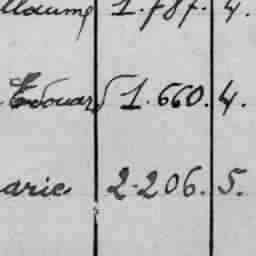 llaume 1.787. 4.
Edouard 1.660. 4.
arie 2.206. 5.